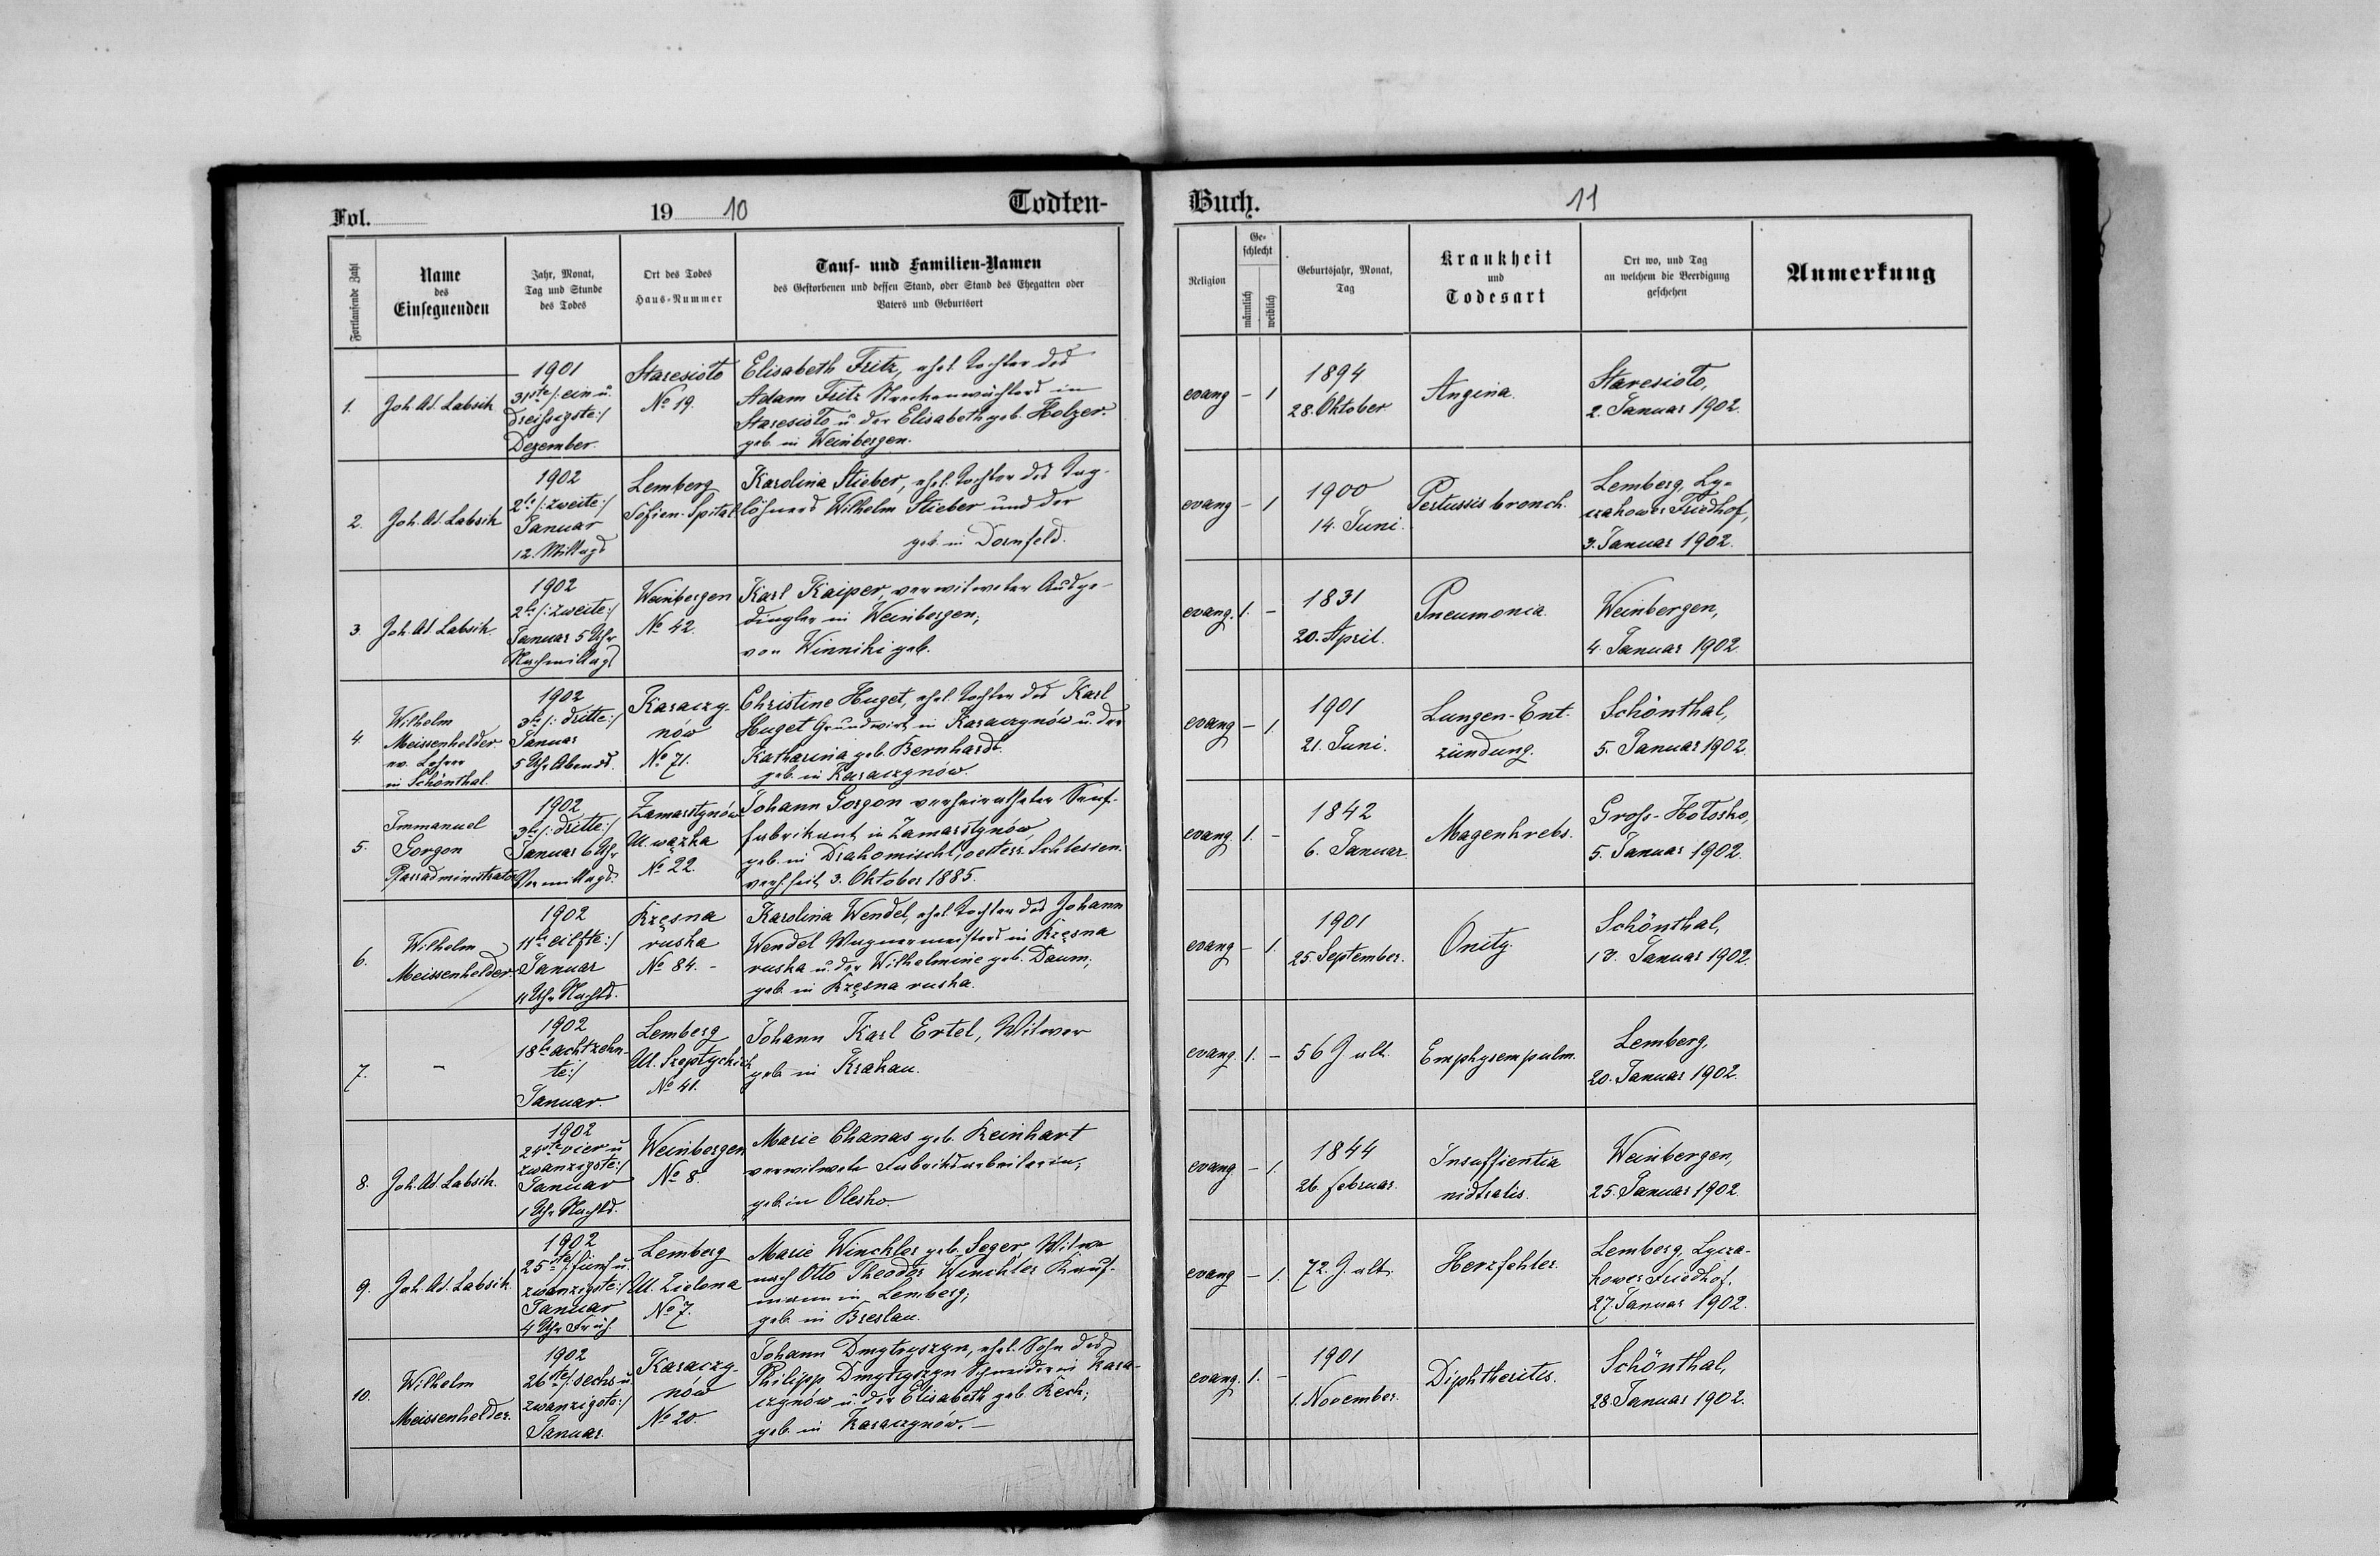 Fol. 19 10 Todten-
Fortlaufende Zahl
Name
des
Einsegnenden
Jahr, Monat,
Tag und Stunde
des Todes
Ort des Todes
Haus-Nummer
Tauf- und Familien-Namen
des Gestorbenen und dessen Stand, oder Stand des Ehegatten oder
Vaters und Geburtsort
1.
Joh. Ad. Labsik
1901
31ste /: ein u.
dreißigste :/
Dezember.
Staresioło
No 19.
Elisabeth Fritz, ehel. Tochter des
Adam Fritz Streckenwächters in
Staresioło u. der Elisabeth geb. Holzer.
geb. in Weinbergen.
2.
Joh. Ad. Labsik
1902
2te /: zweite :/
Januar
12. Mittags
Lemberg
Sofien-Spital
Karolina Stieber, ehel. Tochter des Tag-
löhners Wilhelm Stieber und der
geb. in Dornfeld.
3.
Joh. Ad. Labsik.
1902
2te /: zweite :/
Januar 5 Uhr
Nachmittags
Weinbergen
No 42.
Karl Kaiper, verwitweter Ausge-
dingler in Weinbergen;
von Winniki geb.
4.
Wilhelm
Meissenhelder
ev. Lehrer
in Schönthal.
1902
3te /: dritte :/
Januar
5 Uhr Abends.
Karaczy-
nów
No 71.
Christine Huget, ehel. Tochter des Karl
Huget Grundwirt in Karaczynów u. der
Katharina geb. Bernhardt.
geb. in Karaczynów.
5.
Immanuel
Gorgon
Pfarradministrator
1902
3te /: dritte :/
Januar 6 Uhr
Vormittags.
Zamarstynów
Ul. wązka
No 22.
Johann Gorgon verheiratheter Senf-
fabrikant in Zamarstynów,
geb. in Drahomischl, oesterr. Schlesien.
verh. seit 3. Oktober 1885.
6.
Wilhelm
Meissenhelder
1902
11te eilfte :/
Januar
11 Uhr Nachts.
Rzęsna
ruska
No 84. -
Karolina Wendel, ehel. Tochter des Johann
Wendel Wagnermeisters in Rzęsna
ruska u. der Wilhelmine geb. Daum;
geb. in Rzęsna ruska.
7.
-
1902
18te achtzehn-
te :/
Januar.
Lemberg
Ul. Szeptyckich
No 41.
Johann Karl Ertel, Witwer
geb. in Krakau.
8.
Joh. Ad. Labsik.
1902
24ste vier u
zwanzigste :/
Januar
1 Uhr Nachts.
Weinbergen
No 8.
Marie Chanas geb. Reinhart
verwitwete Fabriksarbeiterin;
geb. in Olesko.
9.
Joh. Ad. Labsik.
1902
25ste /: fünf u.
zwanzigste :/
Januar
4 Uhr Früh.
Lemberg
Ul. Zielona
No 7.
Marie Winckler geb. Seger, Witwe
nach Otto Theodor Winckler Kauf-
mann in Lemberg;
geb. in Breslau.
10.
Wilhelm
Meissenhelder.
1902
26ste /: sechs u
zwanzigste :/
Januar.
Karaczy-
nów
No 20
Johann Dmytryszyn, ehel. Sohn des
Philipp Dmytryszyn Schneider in Kara-
czynów u. der Elisabeth geb. Rech;
geb. in Karaczynów. -
Buch. 11
Religion
Ge-
schlecht
männlich
weiblich
Geburtsjahr, Monat,
Tag
Krankheit
und
Todesart
Ort wo, und Tag
an welchem die Beerdigung
geschehen
Anmerkung
evang - 1
1894
28. Oktober
Angina.
Staresioło,
2. Januar 1902.
evang - 1
1900
14. Juni.
Pertussis bronch.
Lemberg, Ly-
czakower Friedhof,
3. Januar 1902.
evang. 1. -
1831
20. April.
Pneumonia.
Weinbergen,
4. Januar 1902.
evang - 1.
1901
21. Juni.
Lungen-Ent-
zündung.
Schönthal,
5. Januar 1902.
evang. 1. -
1842
6. Januar.
Magenkrebs.
Gross-Hołosko,
5. Januar 1902.
evang - 1.
1901
25. September.
Schönthal,
13. Januar 1902.
evang. 1. -
56 J. alt.
Emphysem pulm.
Lemberg,
20. Januar 1902.
evang. - 1.
1844
26. Februar.
Insuffientia
Weinbergen,
25. Januar 1902.
evang - 1.
72. J. alt.
Herzfehler.
Lemberg, Lycza-
kower Friedhof.
27. Januar 1902.
evang. 1. -
1901
1. November.
Diphtherites.
Schönthal,
28. Januar 1902.